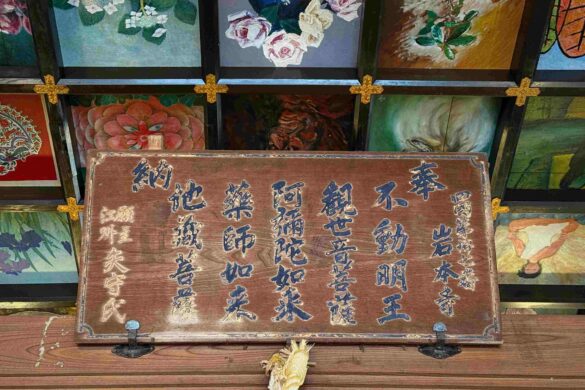 岩本寺
奉
不動明王
觀世音菩薩
阿彌陀如来
藥師如来
地蔵菩薩
納
願主
江州
守氏